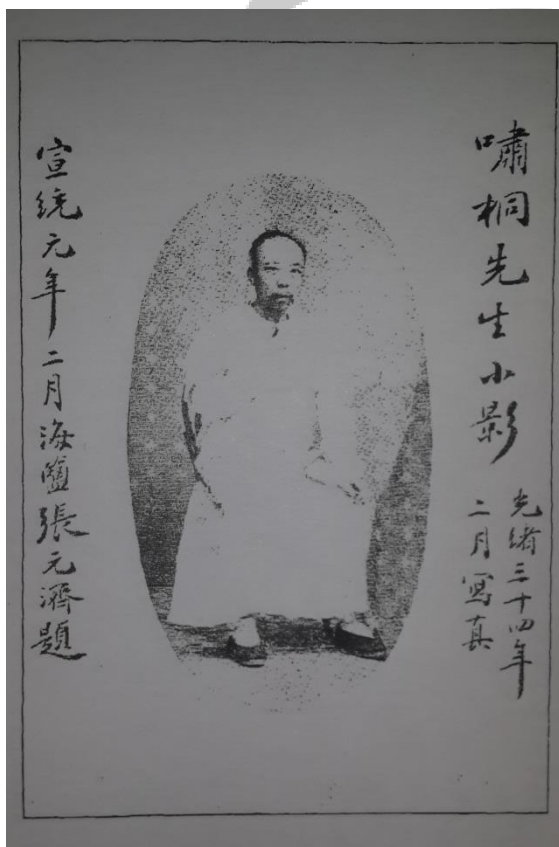 嘯桐先生小影
光緒三十四年
二月寫真
宣統元年二月海鹽張元濟題